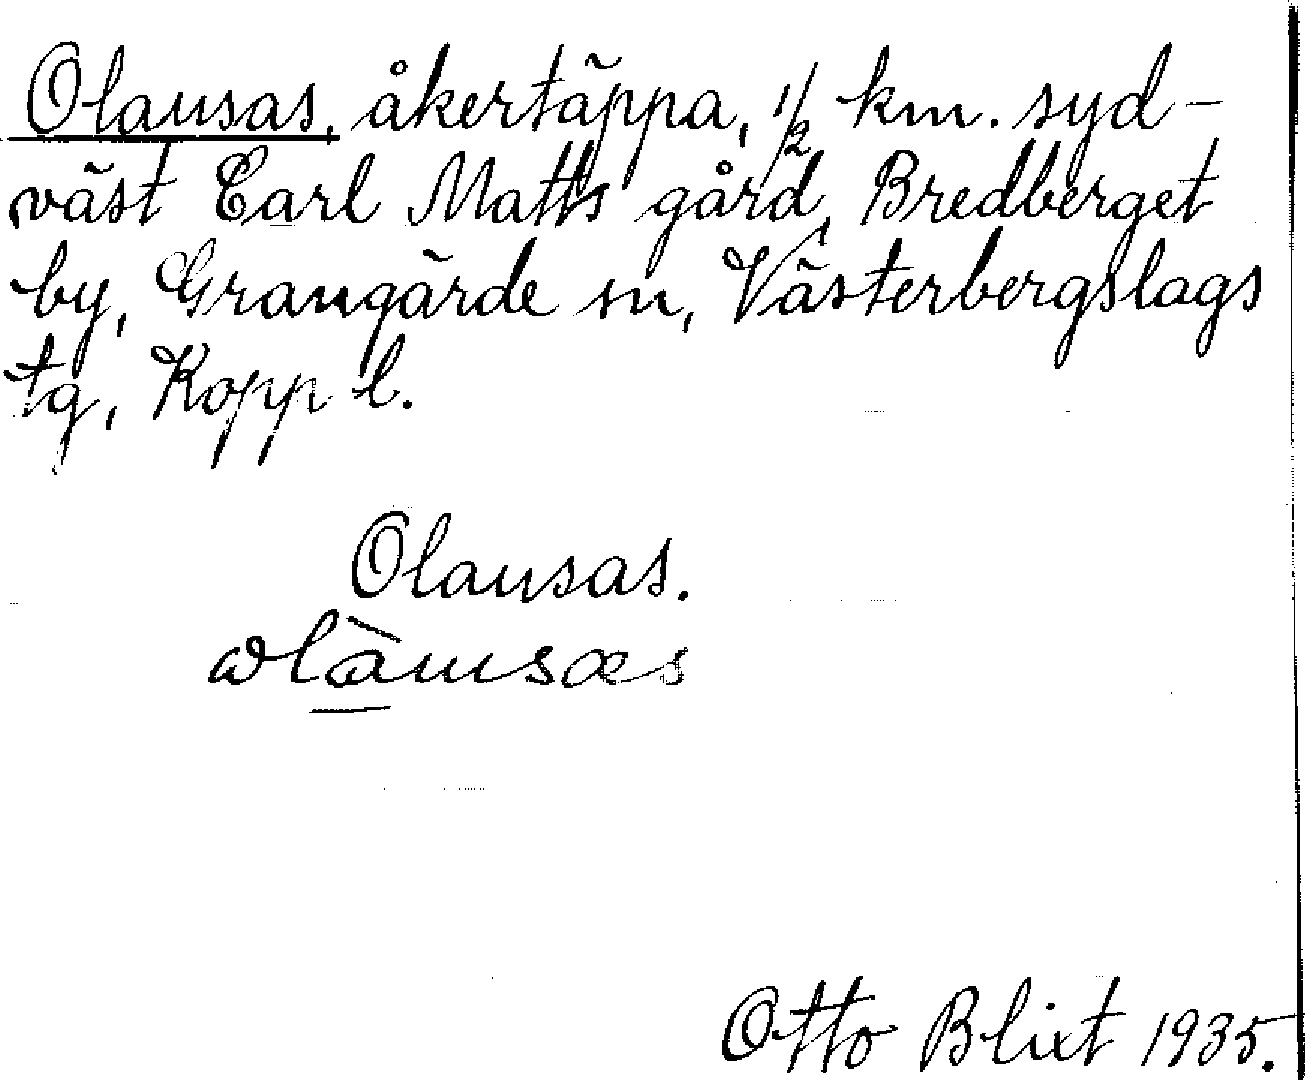 Olausas, åkertäppa, 1/2 km. syd-
väst Carl Matts gård, Bredberget
by, Grangärde sn, Västerbergslags
tg, Kopp l.
Olausas.
Otto Blixt 1935.